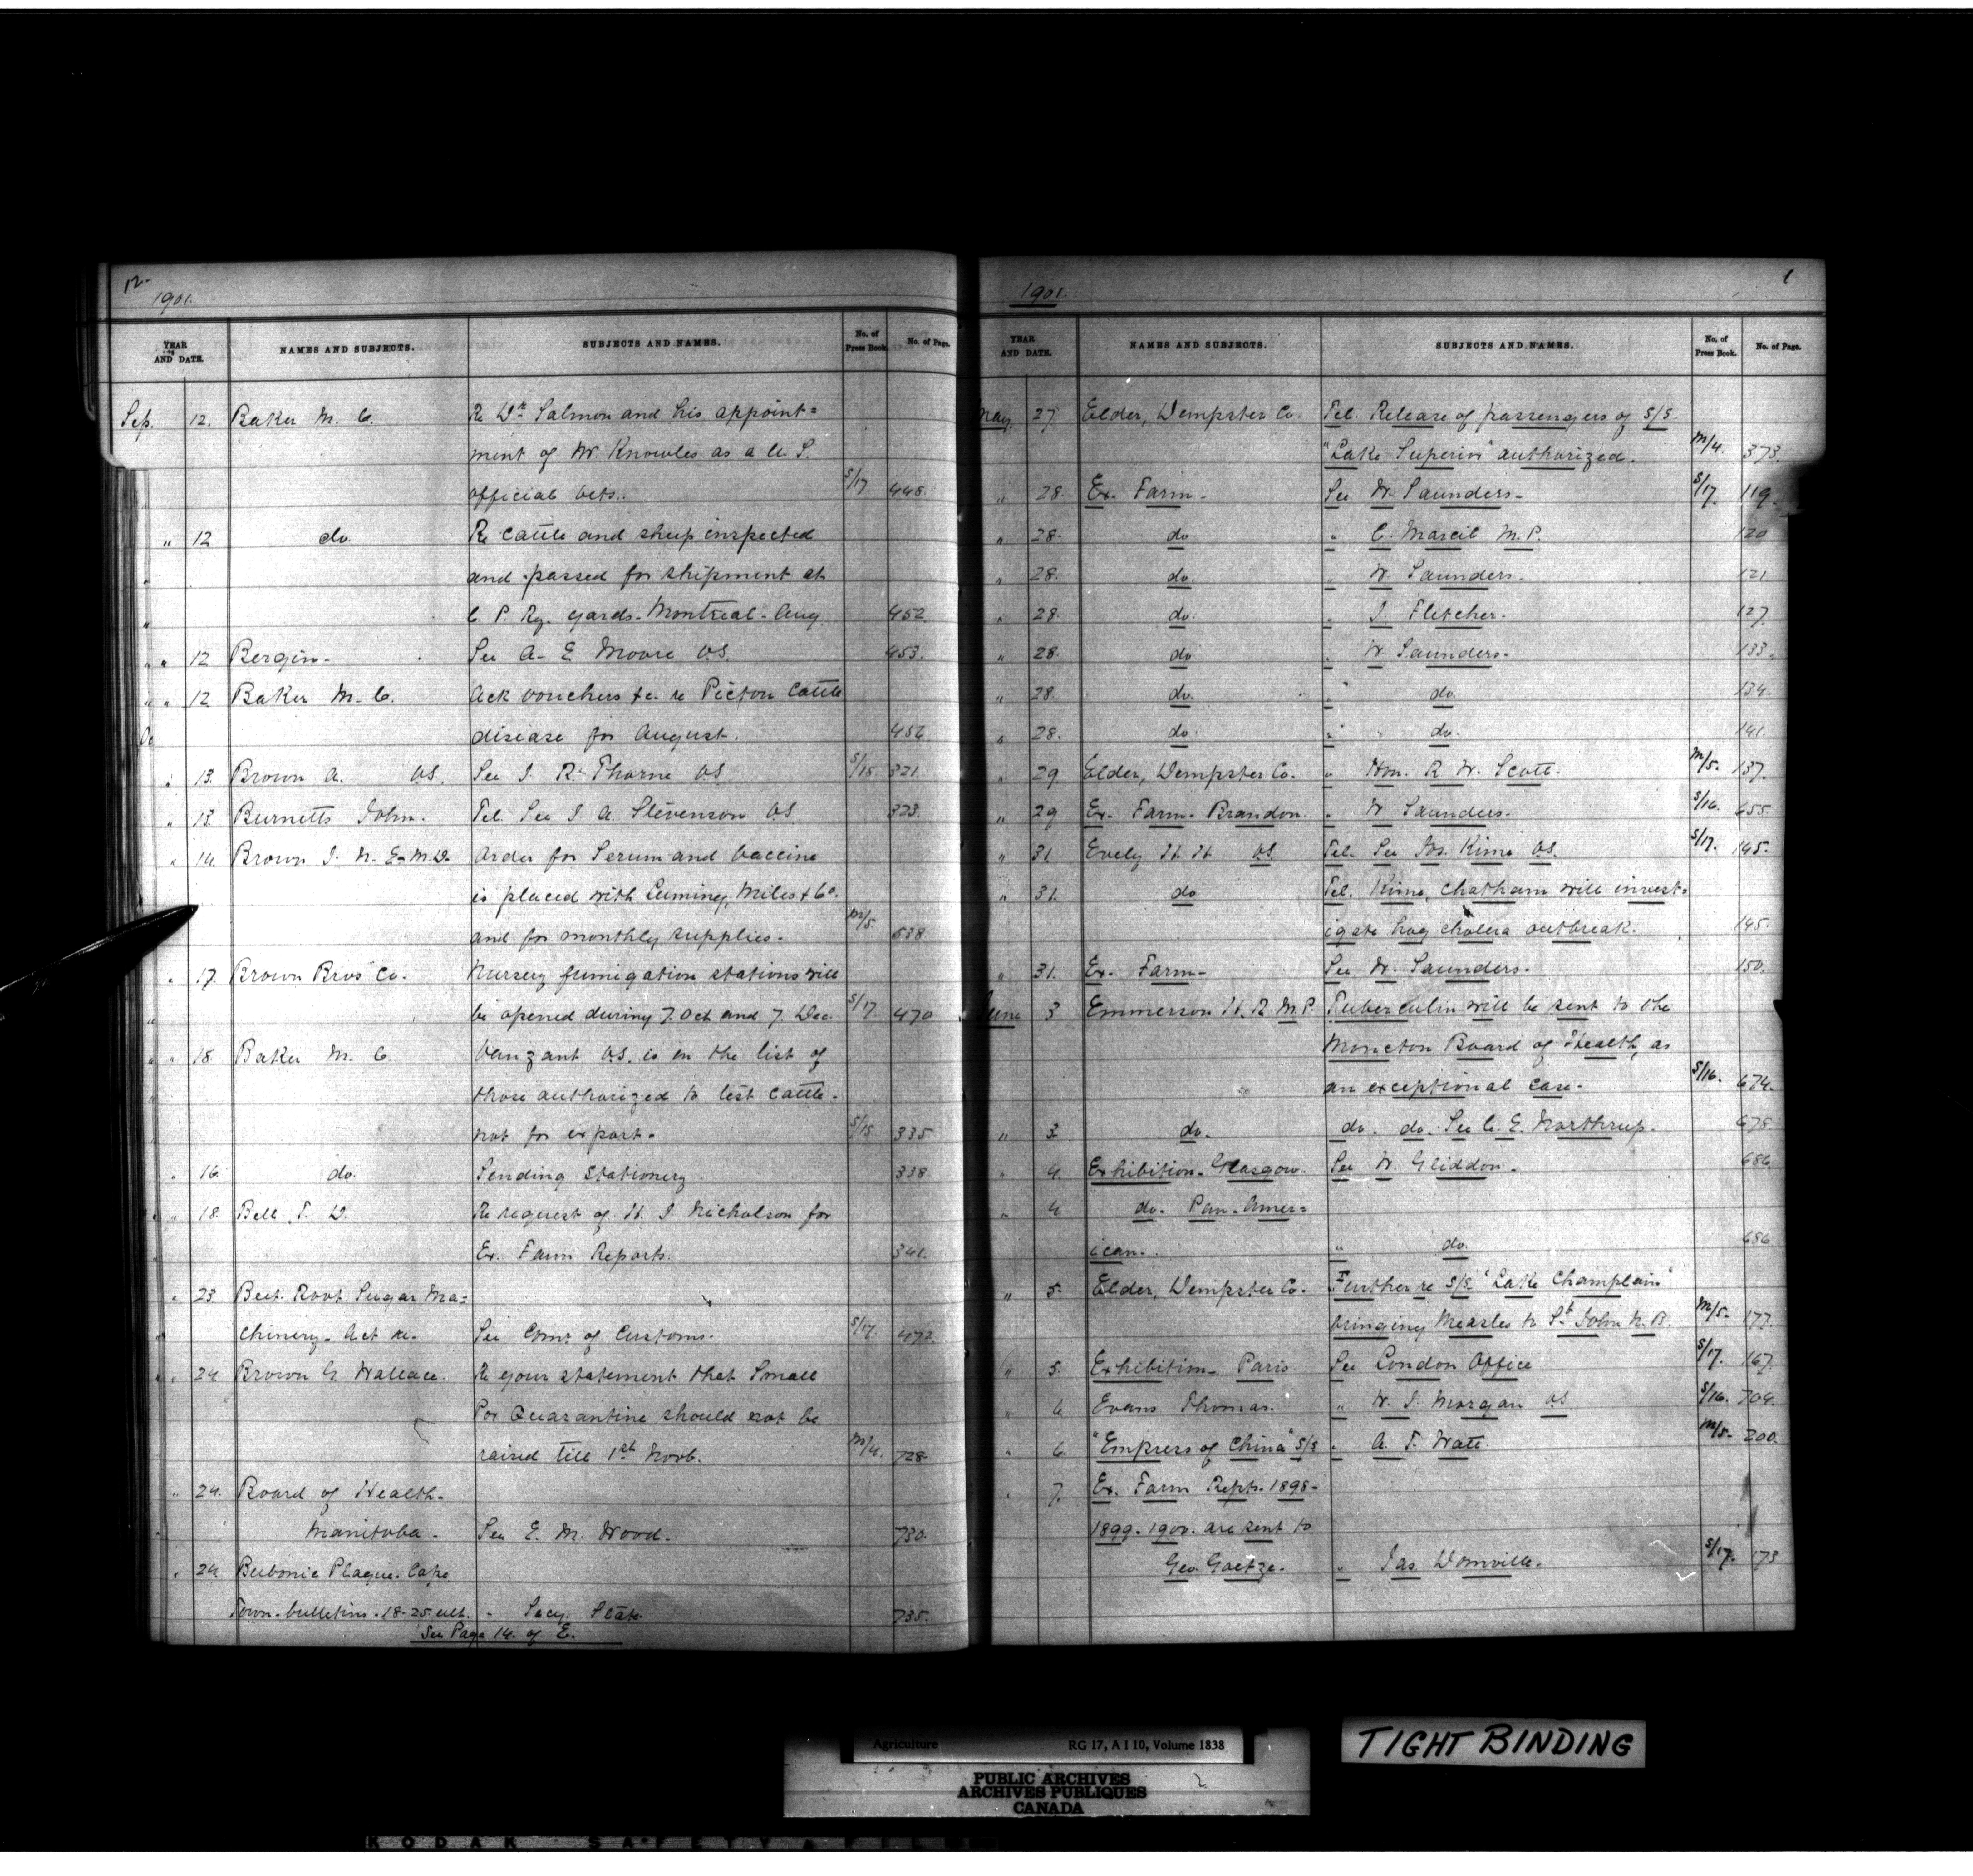 12.
1901.
YEAR AND DATE. NAMES AND SUBJECTS. SUBJECTS AND NAMES. No. of Press Book. No. of Page.
Sep. 12. Baker M. C. Re Dr. Salmon and his appoint=
ment of Mr. Knowles as a U. S.
official vets. S/17 448.
" 12 do. Re cattle and sheep inspected
and passed for shipment at
C P. Ry. yards - Montreal - Aug. 452
" 12 Bergin - See A. E Moore V.S. 453.
" 12 Baker M. C. Ack vouchers &c. re Picton Cattle
disease for August. 456
" 13. Brown A. V.S. See J. R. Thorne V.S S/15 321.
" 13. Burnetts John. Tel. See J A. Stevenson V.S 323.
" 14. Brown J. N. E. M.D. Order for Serum and Vaccine
is placed with Leeming, Miles & Co.
and for monthly supplies. M/5. 638
" 17. Brown Bros Co. Nursery fumigation stations will
be opened during 7. Oct and 7. Dec. S/17. 470
" 18. Baker M. C. Vanzant V.S. is on the list of
those authorized to test cattle -
not for export. S/15 335
" 16. do. Sending Stationery. 338
" 18. Bell, T. D. Re request of H. J Nicholson for
Ex. Farm Reports. 341.
" 23. Beet Root Sugar Ma=
chinery - Act re. See Comr. of Customs. S/17. 472
" 24 Brown G. Wallace. Re your statement that Small
Pox Quarantine should not be
raised till 1st Novb. M/4. 728
" 24. Board of Health -
Manitoba. See E. M. Wood. 730.
" 24. Bubonic Plague - Cape
Town - bulletins - 18-25 ult. " Secy. State 735.
See Page 14. of E.
1
1901.
YEAR AND DATE. NAMES AND SUBJECTS. SUBJECTS AND NAMES. No. of Press Book. No. of Page.
May 27. Elder, Dempster Co. Tel. Release of passengers of S/S.
"Lake Superior" authorized. M/4. 373.
" 28. Ex. Farm - See W. Saunders - S/17. 119.
" 28. do " C. Marcil M.P. 120
" 28. do. " W. Saunders. 121
" 28. do. " J. Fletcher. 127.
" 28. do " W Saunders. 133.
" 28. do. " do. 134.
" 28. do. " do. 141.
" 29 Elder, Dempster Co. " Hon. R. W. Scott. M/5. 137.
" 29 Ex. Farm - Brandon. " W Saunders. S/16. 655.
" 31. Evely H. H. V.S. Tel. See Jos. Kime V.S. S/17. 145.
" 31. do Tel. Kime, Chatham will invest=
igate hog cholera outbreak. 145.
" 31. Ex. Farm - See W. Saunders. 150.
June 3 Emmerson H. R M.P. Tuberculin will be sent to the
Moncton Board of Health, as
an exceptional case. S/16. 674.
" 3. do. do. do. See C. E. Northrup. 678.
" 4. Exhibition - Glasgow. See W. Gliddon. 686
" 4 do. Pan-Amer=
ican. " do. 686
" 5. Elder, Dempster Co. Further re S/S. "Lake Champlain"
bringing Measles to St John N.B. M/5. 177.
" 5. Exhibition - Paris See London Office S/17. 167.
" 6 Evans Thomas. " W. J. Morgan V.S. S/16. 704.
" 6. "Empress of China" S/S " A. T. Watt. M/5. 200.
" 7. Ex. Farm Repts. 1898-
1899-1900. are sent to
Geo. Goetze. " Jas. Domville. S/17. 173
Agriculture RG 17, A I 10, Volume 1838
PUBLIC ARCHIVES
ARCHIVES PUBLIQUES
CANADA
TIGHT BINDING
KODAK SAFETY FIL